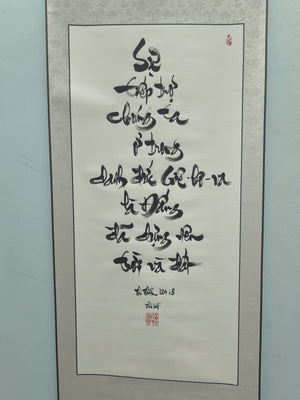 Sự
tiếp trợ
chúng ta
ở trong
danh Đức Giê-hô-va
là Đấng
đã dựng nên
trời và đất